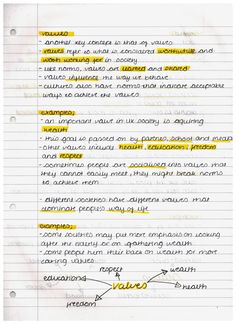 values
- another key concept is that of values
- values refer to what is considered worthwhile and
worth working for in society
- like norms, values are learned and shared
- values influence the way we behave
- cultures also have norms that indicate acceptable
ways to achieve the values
examples;
- an important value in UK society is aquiring
wealth
- this goal is passed on by parents, school and media
- other values include health, education, freedom
and respect
- sometimes people are socialised into values that
they cannot easily meet, they might break norms
to achieve them
- different societies have different values that
dominate peoples way of life
examples;
- some societies may put more emphasis on looking
after the elderly or on gathering wealth
- some people turn their back on wealth for more
caring values
respect
wealth
education
values
health
freedom